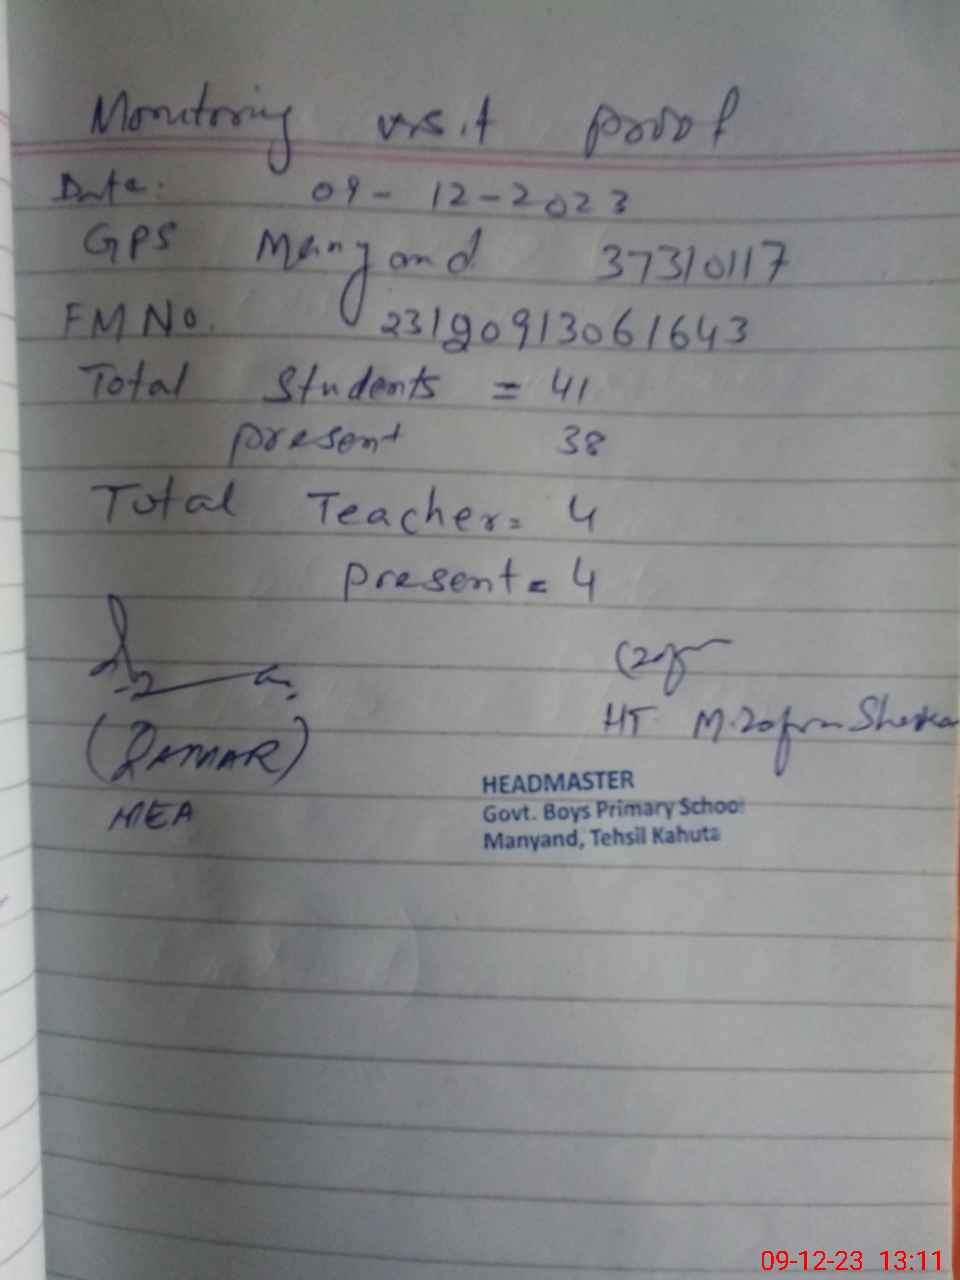 Monitoring visit proof
Date: 09-12-2023
GPS Manyand 37310117
FM No. 23190913061643
Total Students = 41
present 38
Total Teacher = 4
present = 4
(QAMAR)
HT M.
MEA
HEADMASTER
Govt. Boys Primary School
Manyand, Tehsil Kahuta
09-12-23 13:11